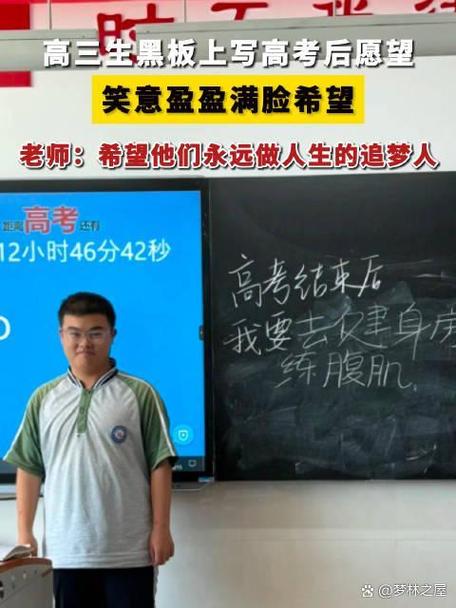 高三生黑板上写高考后愿望
笑意盈盈满脸希望
老师：希望他们永远做人生的追梦人
距离高考还有
12小时46分42秒
高考结束后
我要去健身房
练腹肌
@梦林之屋